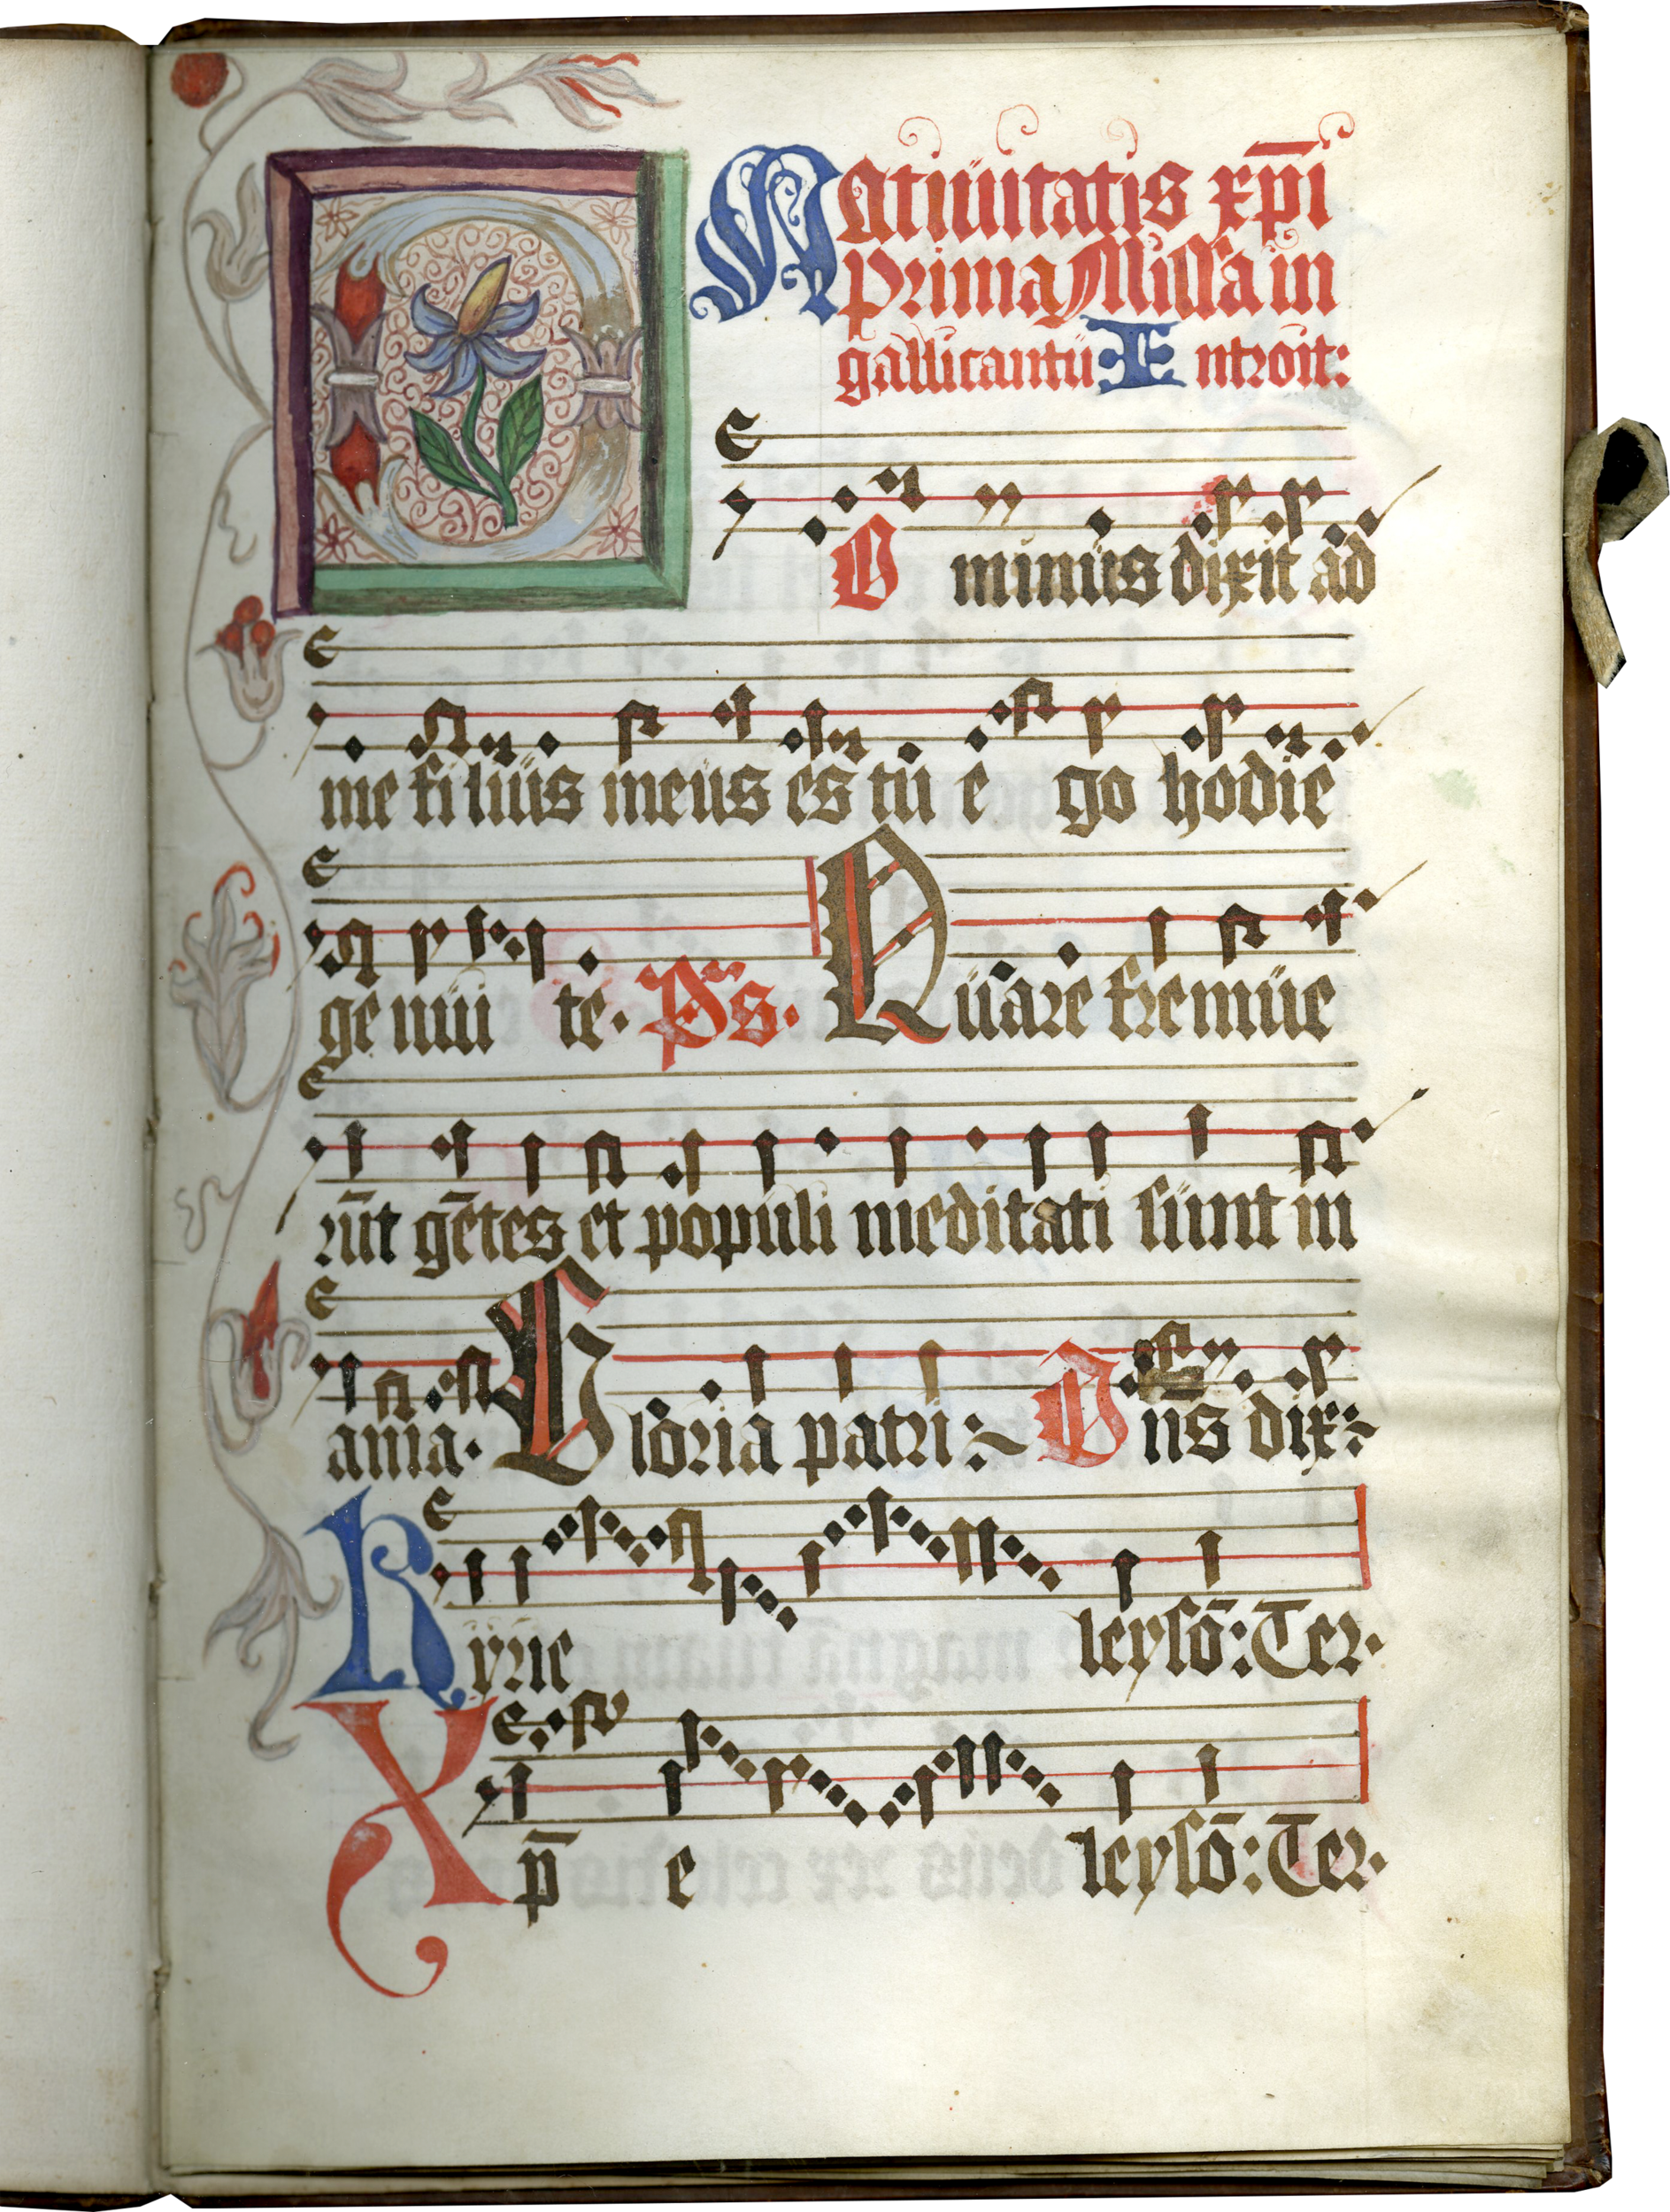 Natiuitatis xp̄i
Prima Missa in
gallicantu Introit:
DOminus dixit ad
me filius meus es tu e go hodie
genui te. Ps. Quare fremue
rūt gētes et populi meditati sunt in
ania. Gloria patri: Dns dix:
Kyrie leysō: Ter.
Xp̄ e leysō: Ter.